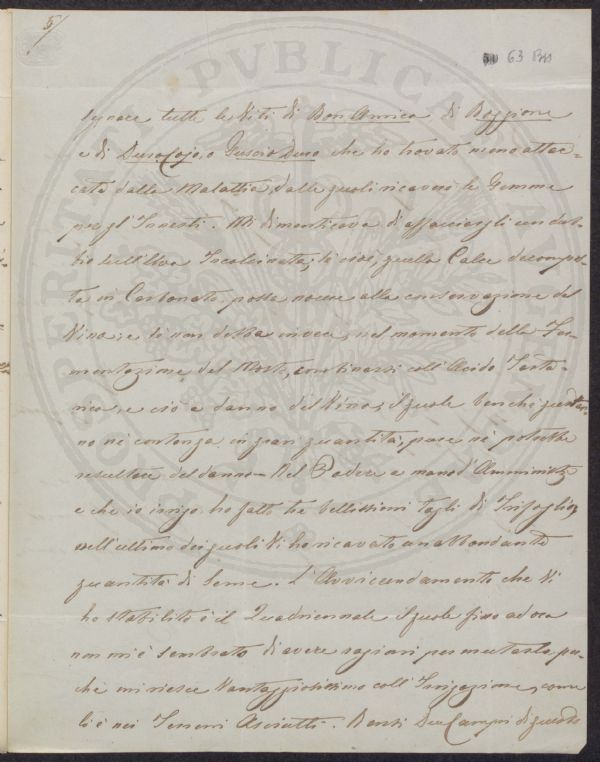 5/
63 BIS
PROSPERITATI PVBLICAE AVGENDAE
tutte le Viti di Bon Amico di Reggione
e di Duro Cojo, o Guscio Duro che ho trovato meno attac=
cate dalla Malattia, dalle quali ricaverò le Gemme
per gl'Innesti. Mi dimenticava di affacciargli un dub-
bio sull'Uva Incalcinata; se cioè, quella Calce decompos-
ta in Carbonato possa nuocere alla conservazione del
Vino; e se non debba invece, nel momento della Fer-
mentazione del Mosto, combinarsi coll'Acido Tarta-
rico, e ciò a danno del Vino; il quale benchè
no ne contenga in gran quantità, pure ne potrebbe
resultare del danno = Nel Podere a mano d'Amministr.
e che io irrigo, ho fatto tre bellissimi Tagli di Trifoglio,
nell'ultimo dei quali Vi ho ricavato una abbondante
quantità di Seme. L'Avvicendamento che Vi
ho stabilito è il Quadriennale il quale fino ad ora
non mi è sembrato di avere ragioni per mutarlo, per-
chè mi riesce Vantaggiosissimo coll'Irrigazione, come
lo è nei Terreni Asciutti. Due Campi di questo